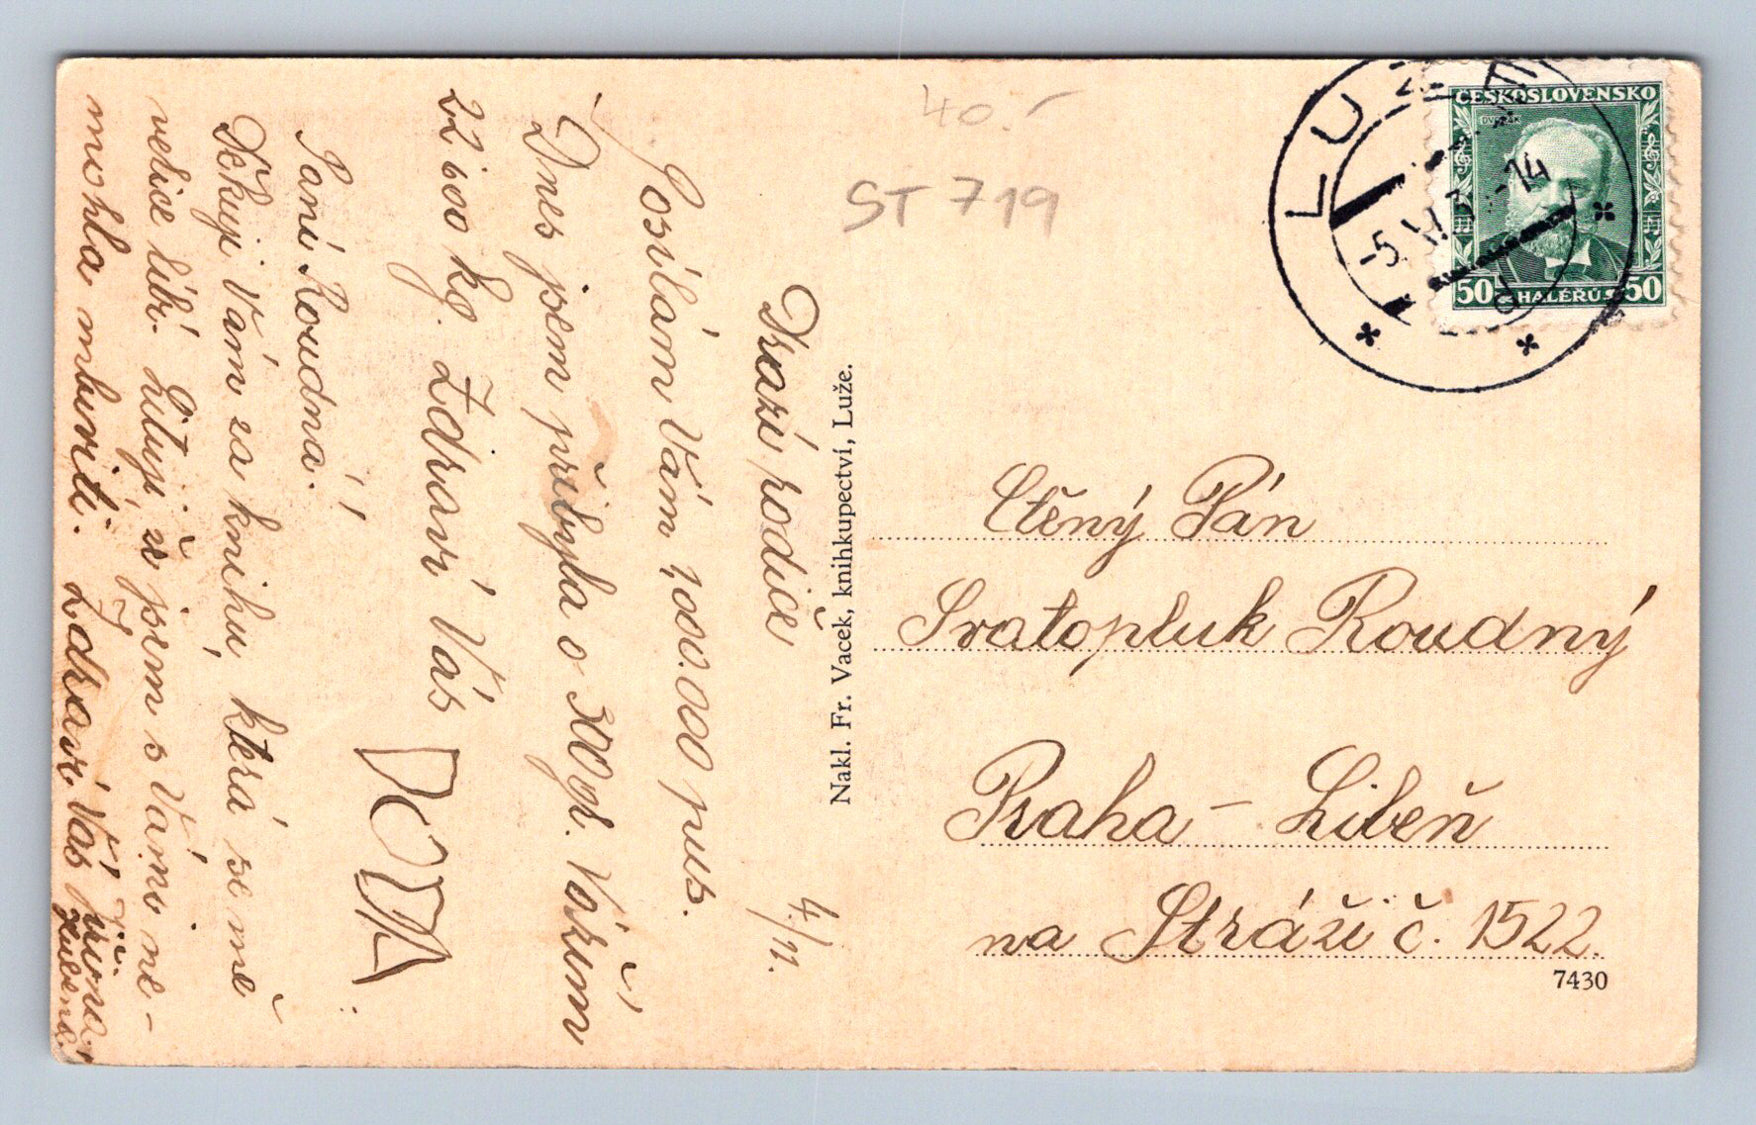 40.-
ST 719
LUŽE
-5.VI.3 -14
ČESKOSLOVENSKO
DVOŘÁK
50 HALÉŘŮ 50
4/VI.
Drazí rodiče
Posílám Vám 1,000.000 pus.
Dnes jsem přibyla o 300 gr. Vážím
22 600 kg. Zdraví Vás
Paní Roudná.
Děkuji Vám za knihu, která se mě
velice líbí. Lituji že jsem s Vámi ne-
mohla mluviti. Zdraví Vás
Nakl. Fr. Vacek, knihkupectví, Luže.
Ctěný Pán
Svatopluk Roudný
Praha - Libeň
na Stráži č. 1522.
7430